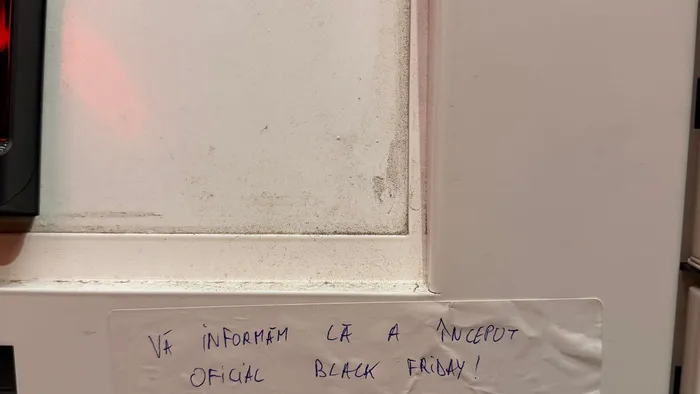 VĂ INFORMĂM CĂ A ÎNCEPUT
OFICIAL BLACK FRIDAY!